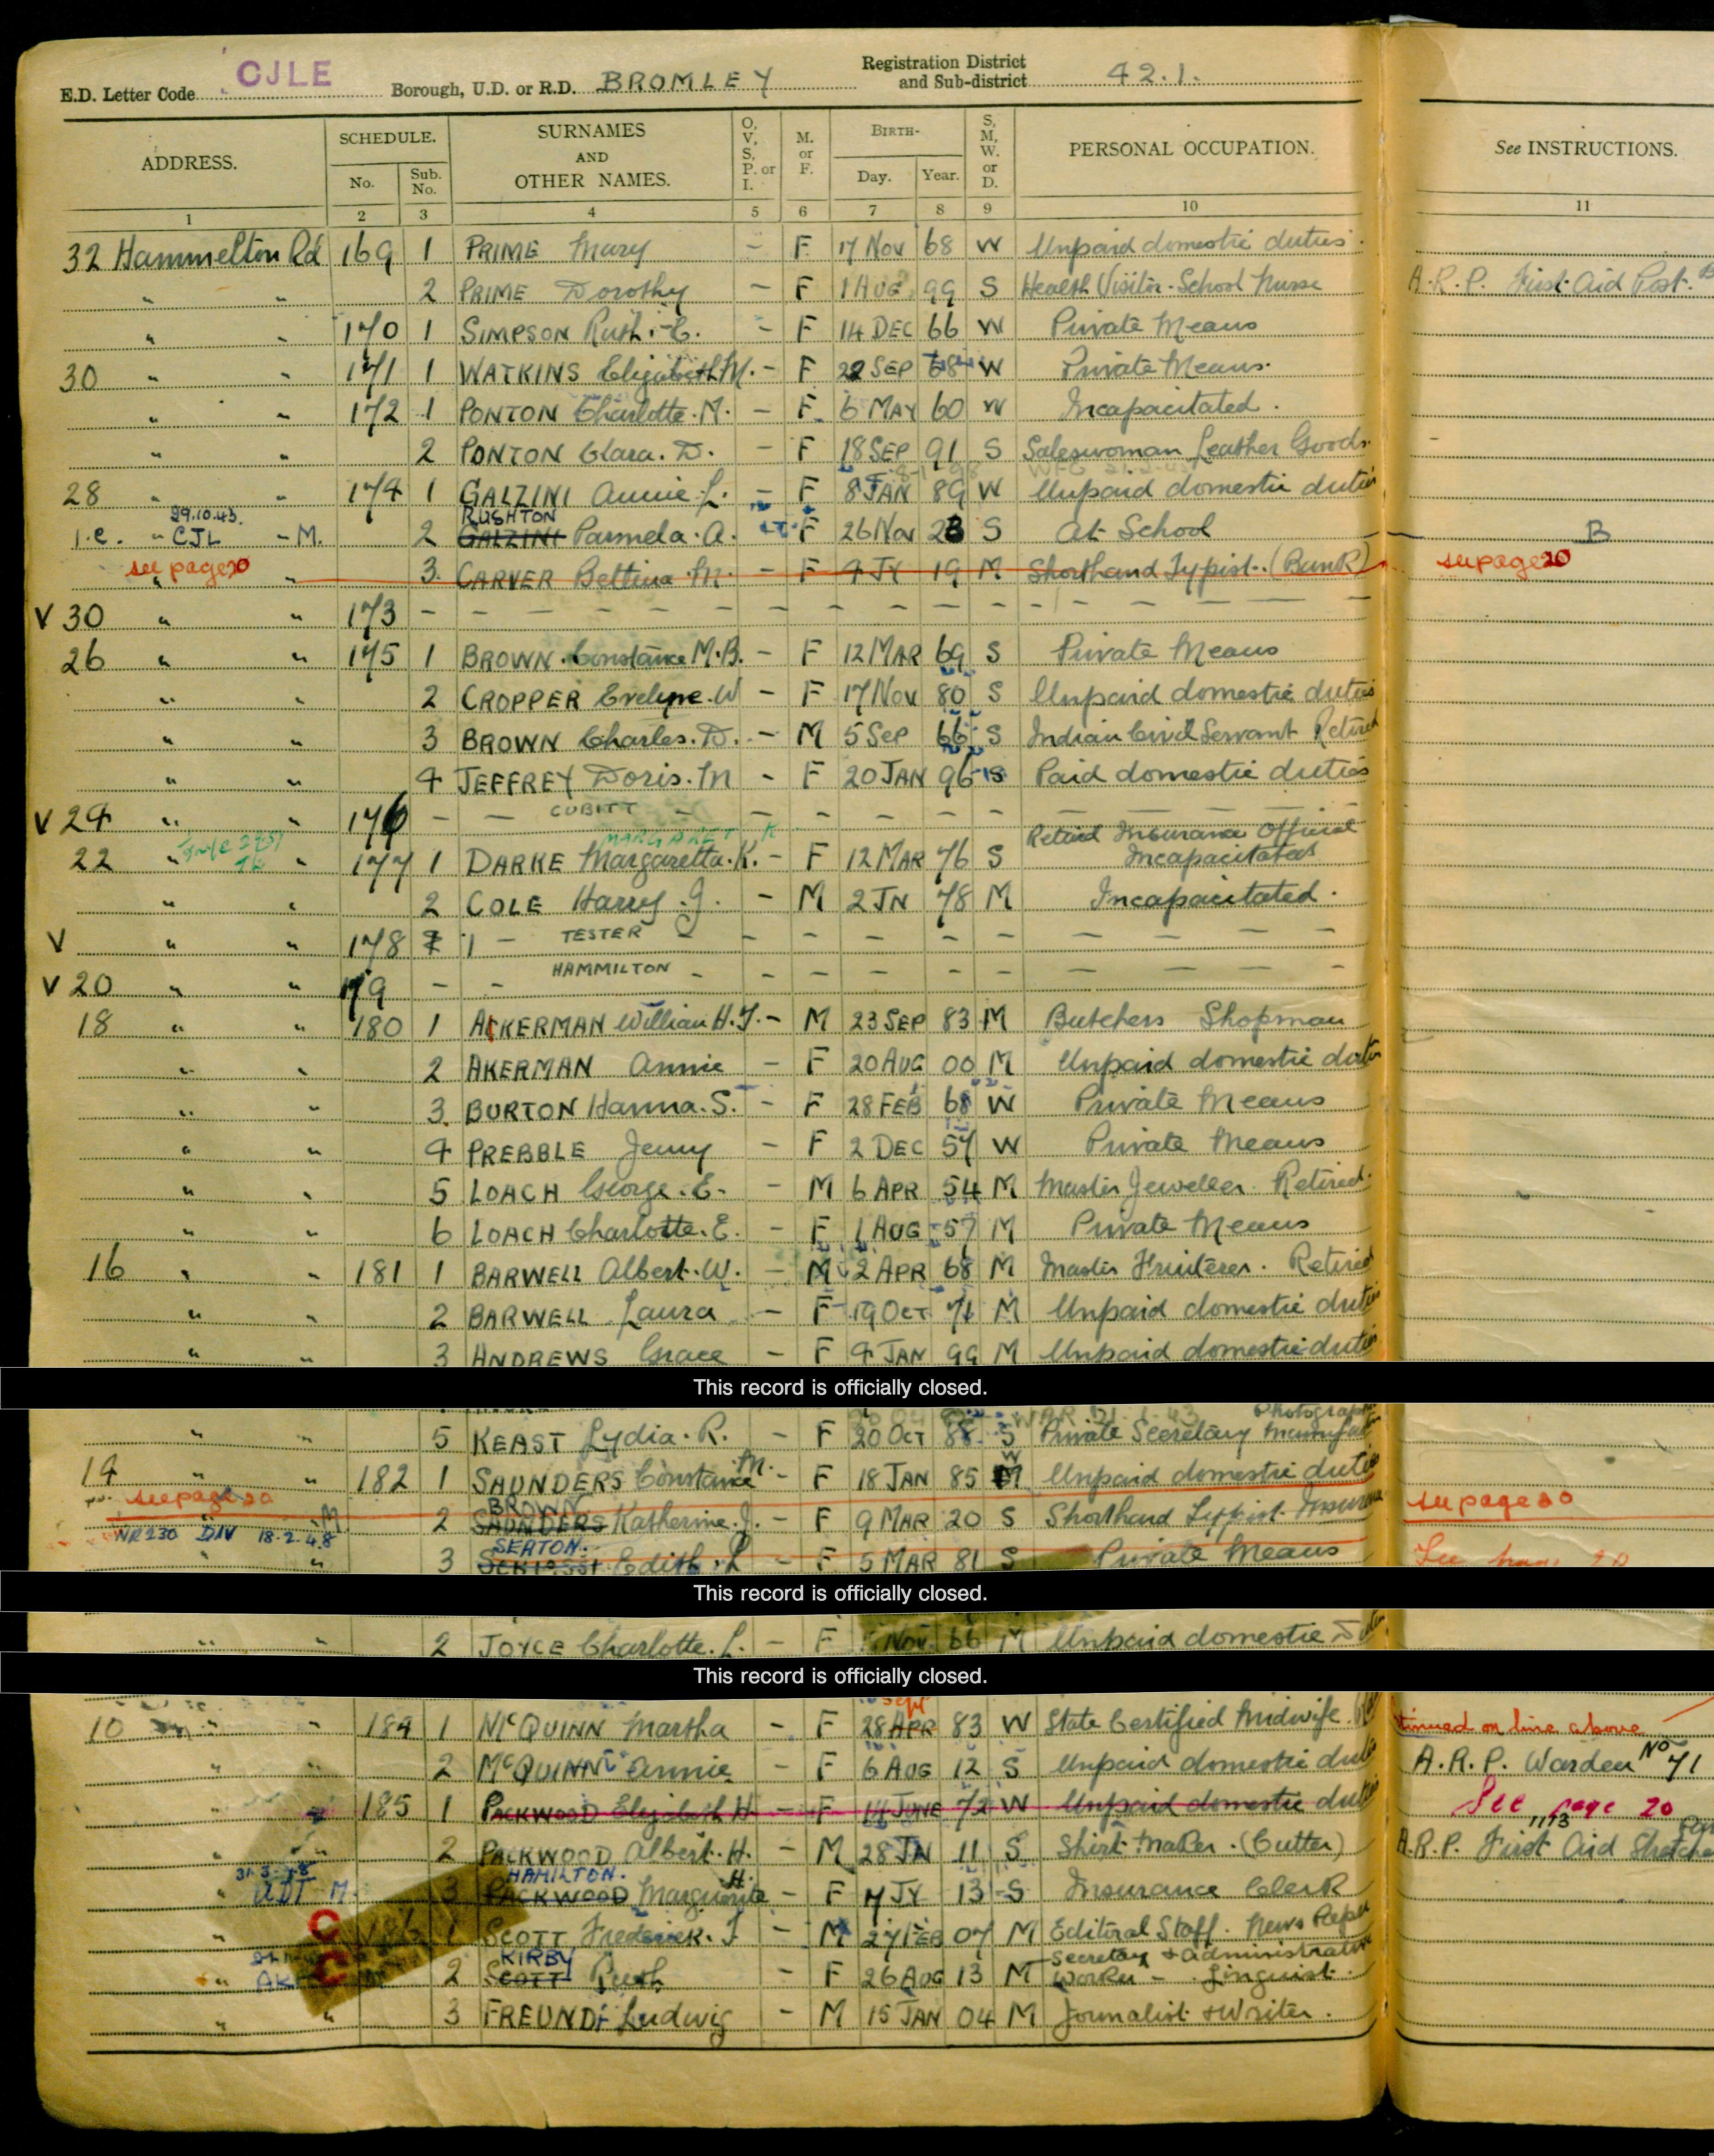 E.D. Letter Code CJLE Borough, U.D. or R.D. BROMLEY Registration District and Sub-district 42.1.
ADDRESS. SCHEDULE. No. Sub. No. SURNAMES AND OTHER NAMES. O, V, S, P. or I. M. or F. BIRTH- Day. Year. S, M, W. or D. PERSONAL OCCUPATION. See INSTRUCTIONS.
1 2 3 4 5 6 7 8 9 10 11
32 Hammelton Rd 169 1 PRIME Mary - F 17 Nov 68 W Unpaid domestic duties.
" " 2 PRIME Dorothy - F 1 AUG 99 S Health Visitor. School Nurse A.R.P. First Aid Post.
" " 170 1 SIMPSON Ruth. E. - F 14 DEC 66 W Private Means
30 " " 171 1 WATKINS Elizabeth M. - F 22 SEP 68 W Private Means.
" " 172 1 PONTON Charlotte. M. - F 6 MAY 60 W Incapacitated.
" " 2 PONTON Clara. D. - F 18 SEP 91 S Saleswoman Leather Goods.
28 " " 174 1 GALZINI Annie L. - F 8 JAN 89 W Unpaid domestic duties
29.10.43. RUSHTON
i.e. " CJL " M. 2 GALZINI Pamela. A. F 26 Nov 23 S At School B
see page 20 " 3. CARVER Bettina M. - F 4 JY 19 M Shorthand Typist. (Bank) see page 20
V 30 " " 173 - - - - - - - - -
26 " " 175 1 BROWN. Constance M.B. - F 12 MAR 69 S Private Means
" " 2 CROPPER Evelyne. W - F 17 Nov 80 S Unpaid domestic duties
" " 3 BROWN Charles. D. - M 5 Sep 66 S Indian Civil Servant Retired
" " 4 JEFFREY Doris. M - F 20 JAN 96 S Paid domestic duties
V 24 " " 176 - - CUBITT - - - - - - -
MARGARET K Retired Insurance Official
22 " " 177 1 DARKE Margaretta. K. - F 12 MAR 76 S Incapacitated
" " 2 COLE Harry. J. - M 2 JN 78 M Incapacitated.
V " " 178 1 - TESTER - - - - - - -
V 20 " " 179 - - HAMMILTON - - - - - - -
18 " " 180 1 AKERMAN William H. - M 23 SEP 83 M Butchers Shopman
" " 2 AKERMAN Annie - F 20 AUG 00 M Unpaid domestic duties
" " 3. BURTON Hanna. S. - F 28 FEB 68 W Private Means
" " 4 PREBBLE Jenny - F 2 DEC 57 W Private Means
" " 5 LOACH George. E. - M 6 APR 54 M Master Jeweller Retired.
" " 6 LOACH Charlotte. E. - F 1 AUG 57 M Private Means
16 " " 181 1 BARWELL Albert. W. - M 2 APR 68 M Master Fruiterer. Retired
" " 2 BARWELL Laura - F 19 OCT 71 M Unpaid domestic duties
" " 3 ANDREWS Grace - F 4 JAN 99 M Unpaid domestic duties
This record is officially closed.
" " 5 KEAST Lydia. R. - F 20 OCT 88 S Private Secretary
14 " " 182 1 SAUNDERS Constance M. - F 18 JAN 85 M W Unpaid domestic duties
see page 20 BROWN see page 20
" M 2 SAUNDERS Katherine. J. - F 9 MAR 20 S Shorthand Typist.
NR230 DIV 18.2.48 SEATON.
" " 3 Edith. L - F 5 MAR 81 S Private Means See page 20
This record is officially closed.
" " 2 JOYCE Charlotte. L. - F Nov 66 M Unpaid domestic
This record is officially closed.
Sept
10 " " 184 1 McQUINN Martha - F 28 APR 83 W State Certified Midwife continued on line above
" " 2 McQUINN Annie - F 6 AUG 12 S Unpaid domestic duties A.R.P. Warden No 71
" 185 1 PACKWOOD Elizabeth H - F 14 JUNE 72 W Unpaid domestic duties See page 20
" " 2 PACKWOOD Albert. H. - M 28 JN 11 S Shirt Maker. (Cutter) A.R.P. First Aid
HAMILTON. H.
" M. 3 PACKWOOD Marguerite - F 7 JY 13 S Insurance Clerk
" C 186 1 SCOTT Frederick. J - M 27 FEB 07 M Editoral Staff.
KIRBY Secretary & Administrative
" C 2 SCOTT Ruth - F 26 AUG 13 M Worker - Linguist.
" " 3 FREUND Ludwig - M 15 JAN 04 M Journalist & Writer.